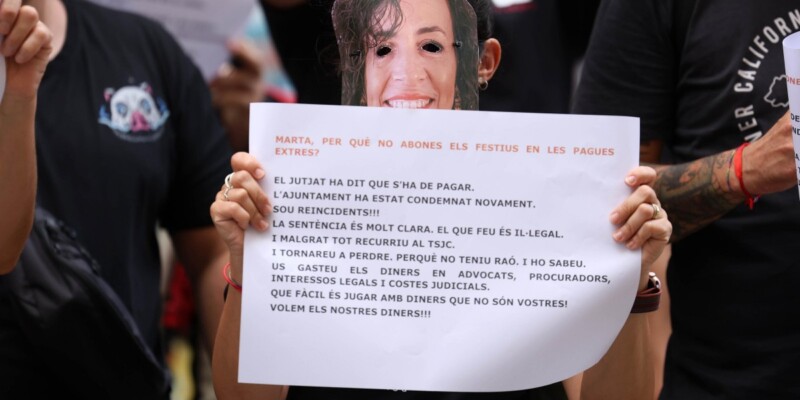 MARTA, PER QUÈ NO ABONES ELS FESTIUS EN LES PAGUES
EXTRES?
EL JUTJAT HA DIT QUE S'HA DE PAGAR.
L'AJUNTAMENT HA ESTAT CONDEMNAT NOVAMENT.
SOU REINCIDENTS!!!
LA SENTÈNCIA ÉS MOLT CLARA. EL QUE FEU ÉS IL·LEGAL.
I MALGRAT TOT RECURRIU AL TSJC.
I TORNAREU A PERDRE. PERQUÈ NO TENIU RAÓ. I HO SABEU.
US GASTEU ELS DINERS EN ADVOCATS, PROCURADORS,
INTERESSOS LEGALS I COSTES JUDICIALS.
QUE FÀCIL ÉS JUGAR AMB DINERS QUE NO SÓN VOSTRES!
VOLEM ELS NOSTRES DINERS!!!
CALIFORN